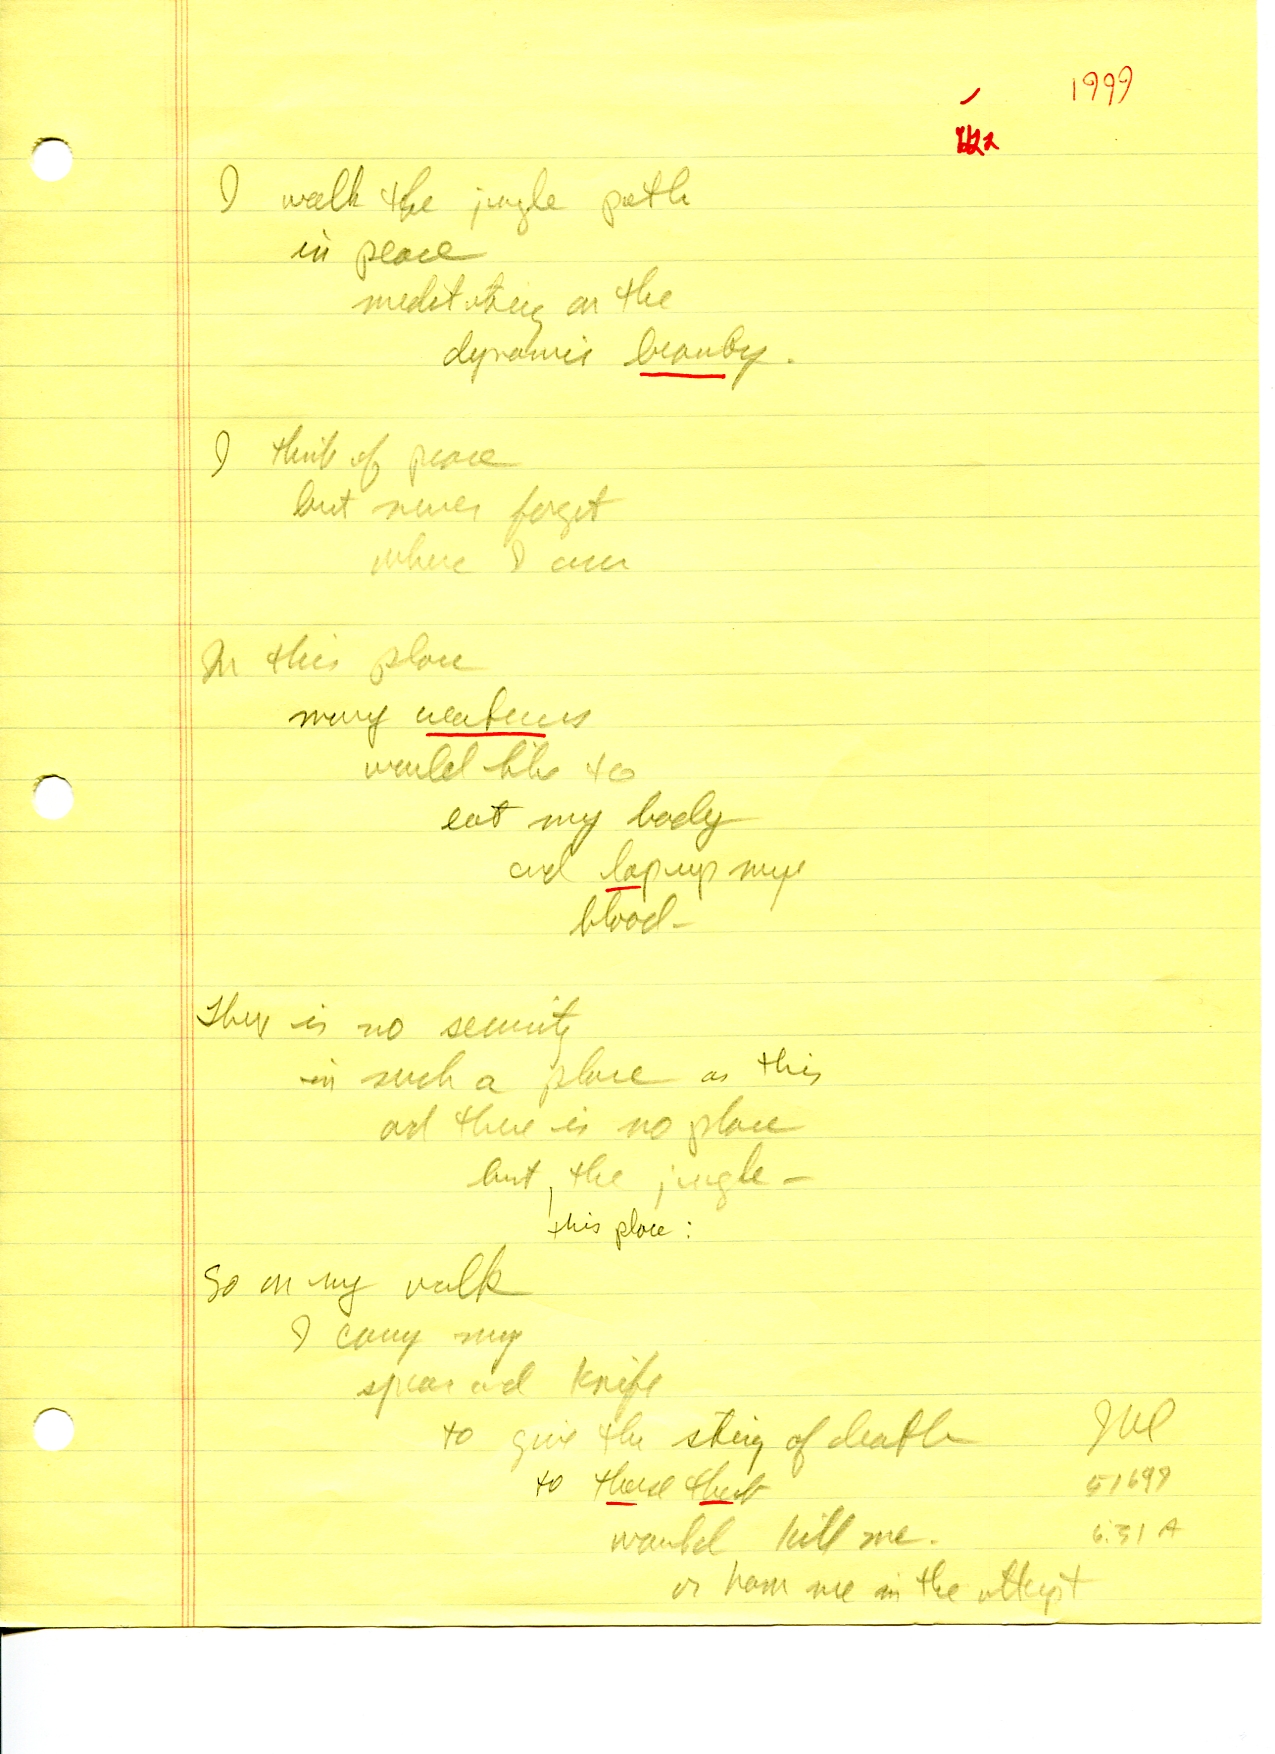 1999
I walk the jungle path
in peace
meditating on the
dynamic beauty.
I think of peace
but never forget
where I am
In this place
many creatures
would like to
eat my body
and lap up my
blood-
There is no security
in such a place as this
and there is no place
but the jungle -
this place:
So on my walk
I carry my
spear and knife
to give the sting of death
to those that
would kill me.
or harm me in the attempt
51699
6:31 A